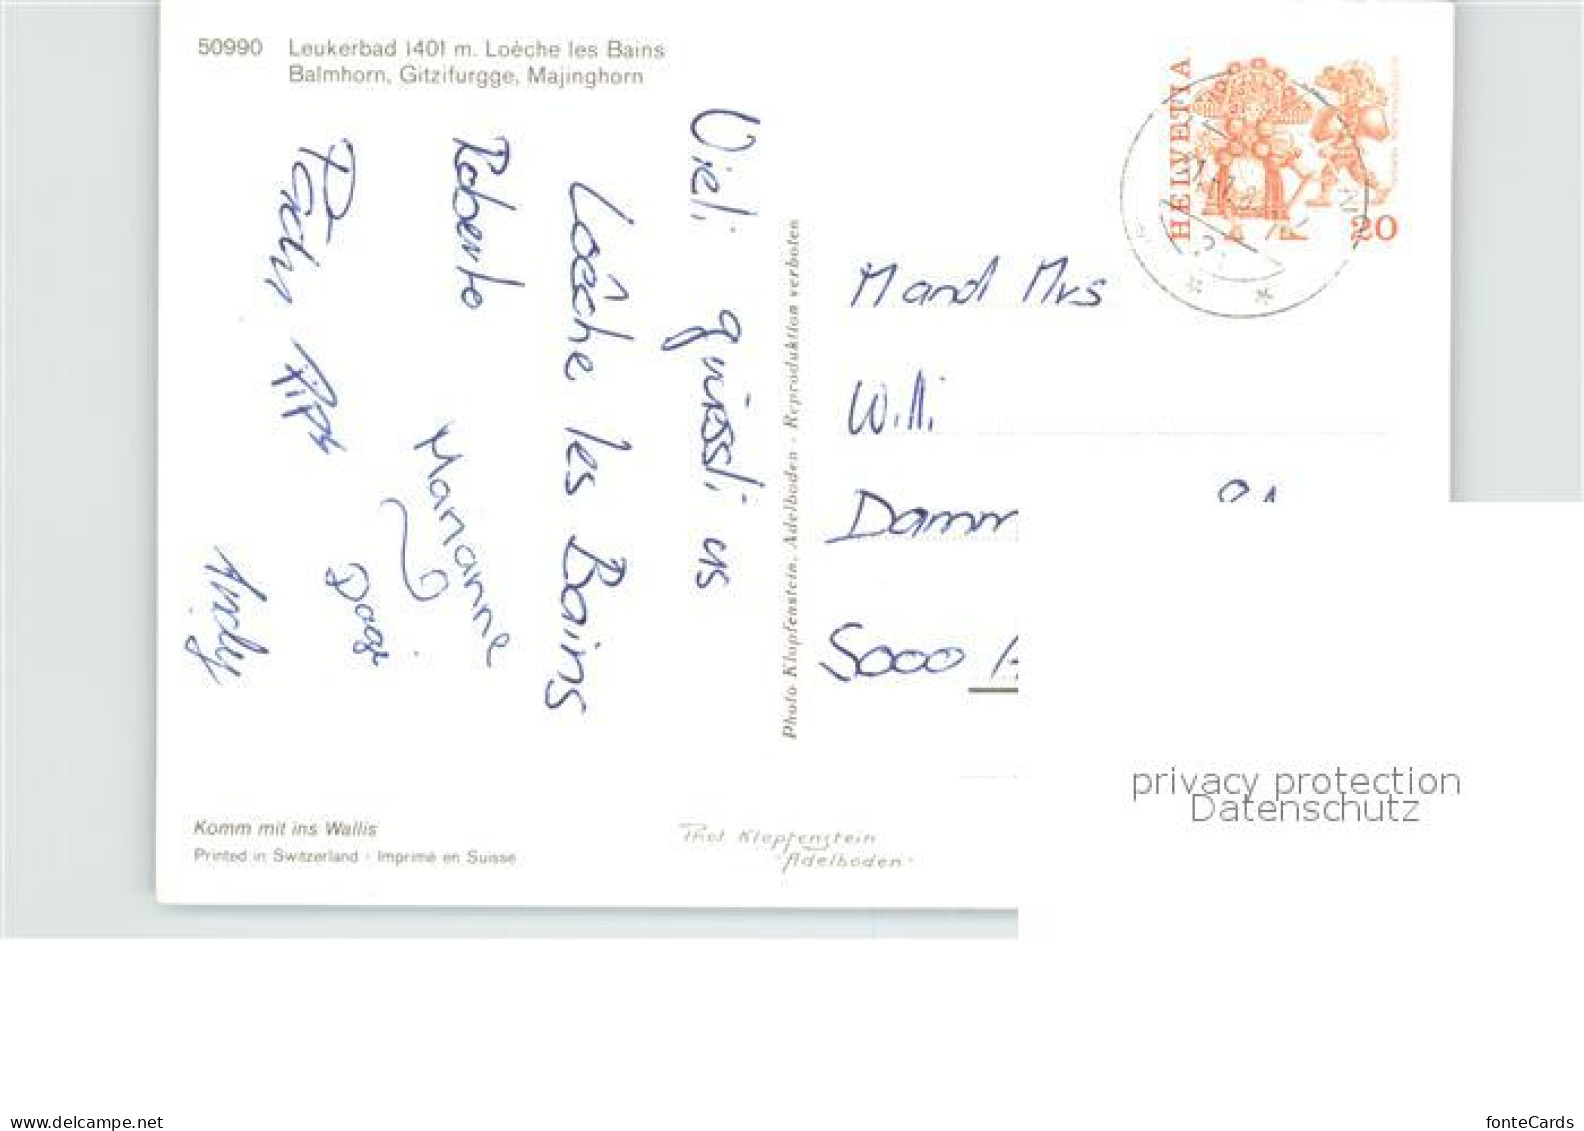 50990 Leukerbad 1401 m. Loèche les Bains
Balmhorn, Gitzifurgge, Majinghorn
Vieli grüessli us
Loêche les Bains
Roberto
Marianne
Pipo
HELVETIA
20
M and Mrs
Willi
Damm
5000
Photo Klopfenstein, Adelboden - Reproduktion verboten
Komm mit ins Wallis
Printed in Switzerland - Imprimé en Suisse
Phot Klopfenstein
"Adelboden"
privacy protection
Datenschutz
www.delcampe.net
fonteCards